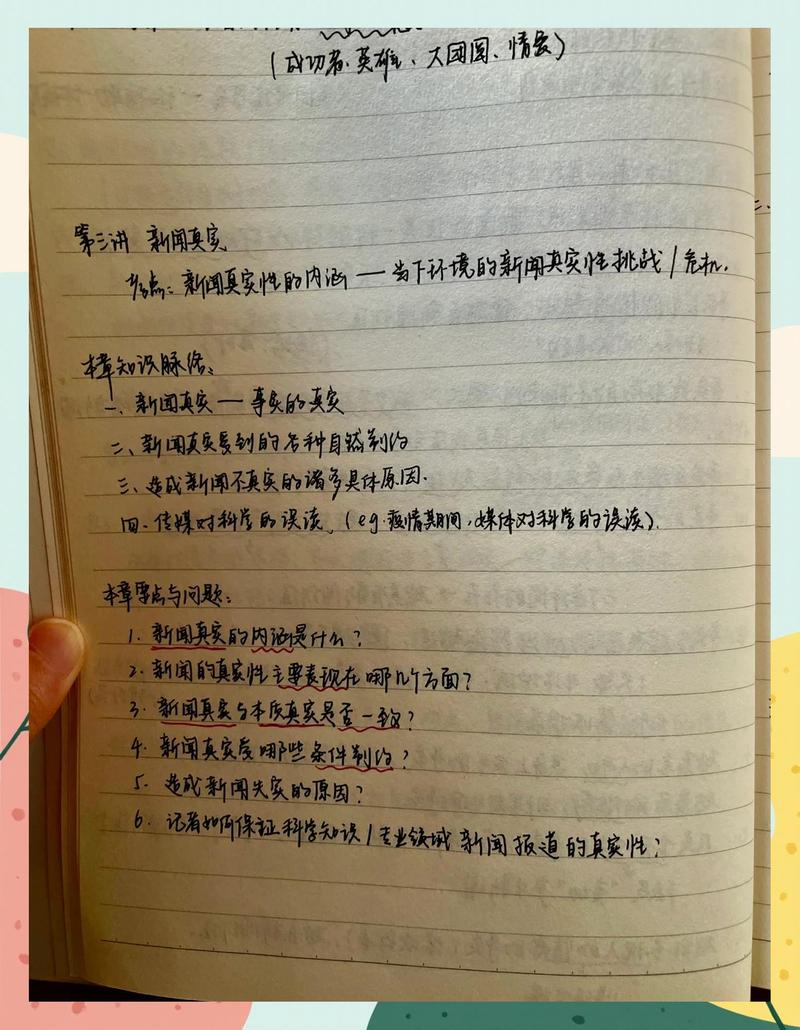 (成功者、英雄、大团圆、情景)
第三讲 新闻真实
考点：新闻真实性的内涵 — 当下环境的新闻真实性挑战/危机.
本章知识脉络：
一、新闻真实 — 事实的真实
二、新闻真实受到的各种自然制约
三、造成新闻不真实的诸多具体原因.
四、传媒对科学的误读、(eg.疫情期间,媒体对科学的误读).
本章要点与问题：
1. 新闻真实的内涵是什么?
2. 新闻的真实性主要表现在哪几个方面?
3. 新闻真实与本质真实是否一致?
4. 新闻真实受哪些条件制约?
5. 造成新闻失实的原因?
6. 记者如何保证科学知识/专业领域新闻报道的真实性?